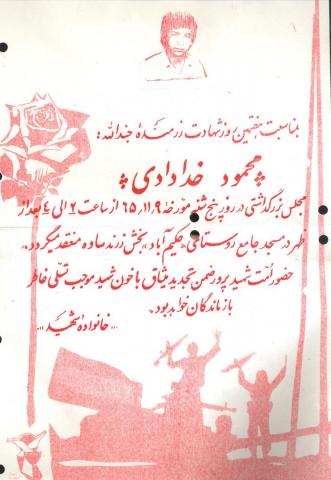 بمناسبت هفتمین روز شهادت رزمندهٔ جندالله:
«محمود خدادادی»
مجلس بزرگداشتی در روز پنج شنبه مورخه ۶۵،۱۱،۹ از ساعت ۲ الی ٤ بعد از
ظهر در مسجد جامع روستای «حکیم آباد» بخش زرند ساوه منعقد میگردد،
حضور امت شهید پرور ضمن تجدید میثاق با خون شهید موجب تسلی خاطر
بازماندگان خواهد بود.
«خانوادهٔ شهید»